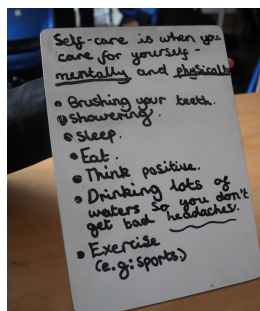 Self-care is when you
care for yourself -
mentally and physically
• Brushing your teeth.
• showering.
• sleep.
• Eat.
• Think positive.
• Drinking lots of
waters so you don't
get bad headaches.
• Exercise
(e.g: sports.)